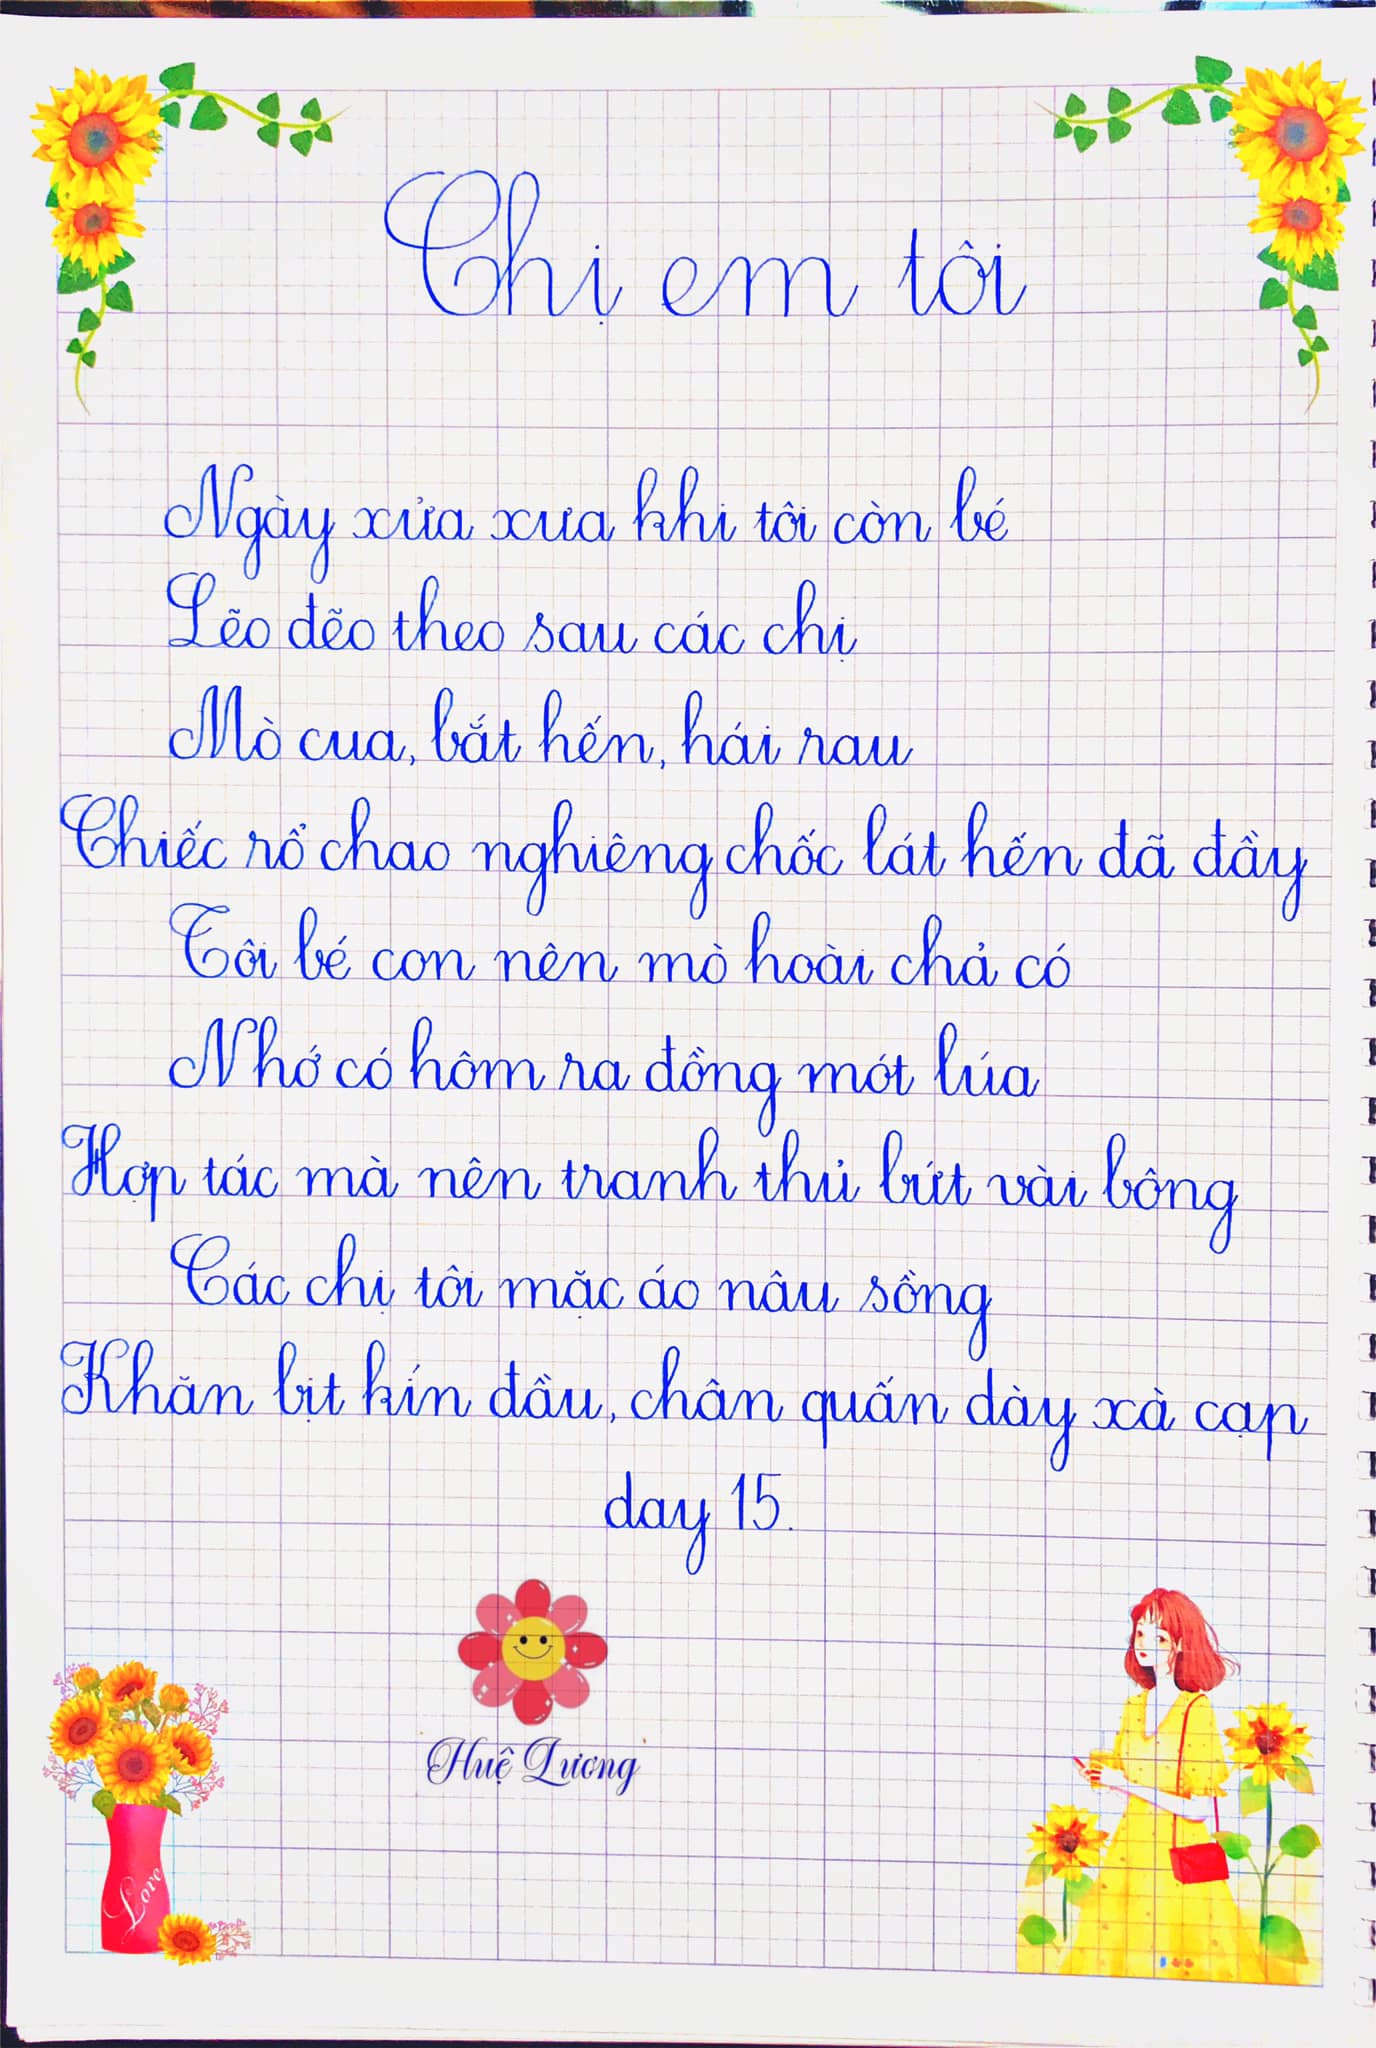 Chị em tôi
Ngày xửa xưa khi tôi còn bé
Lẽo đẽo theo sau các chị
Mò cua, bắt hến, hái rau
Chiếc rổ chao nghiêng chốc lát hến đã đầy
Tôi bé con nên mò hoài chả có
Nhớ có hôm ra đồng mót lúa
Hợp tác mà nên tranh thủ bứt vài bông
Các chị tôi mặc áo nâu sồng
Khăn bịt kín đầu, chân quấn dày xà cạp
day 15.
Huệ Lương
Love